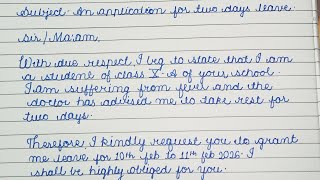 Subject- An application for two days leave.
Sir/Ma'am,
With due respect, I beg to state that I am
a student of class X-A of your school.
I am suffering from fever and the
doctor has advised me to take rest for
two days.
Therefore, I kindly request you to grant
me leave for 10th feb to 11th feb 2026. I
shall be highly obliged for you.